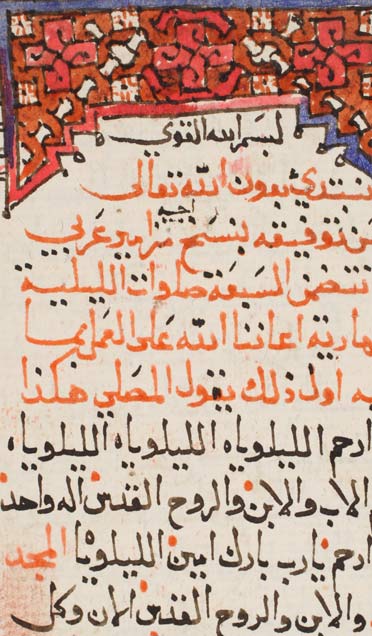 لبسم الله القوي
نبتدي بعون الله تعالى
من توفيقه بنسخ مزامير عربي
تتضمن السبعة صلوات الليلية
هارية اعاننا الله على العمل بما
به اول ذلك يقول المصلي هكذا
ارحم الليلوياه الليلوياه الليلوياه
الاب والابن والروح القدس اله واحد
ارحم يارب بارك امين الليلويا المجد
والابن والروح القدس الان وكل